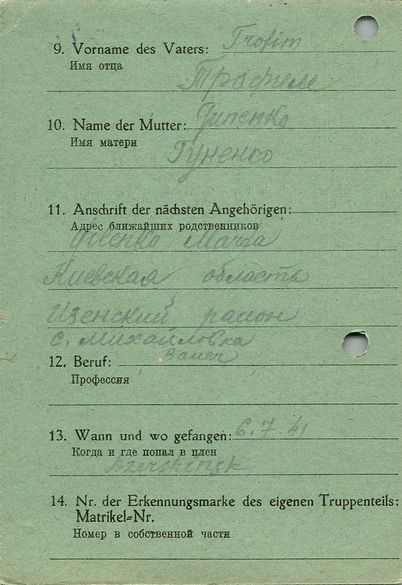 9. Vorname des Vaters: Trofim
Имя отца
10. Name der Mutter:
Имя матери
Гуненко
11. Anschrift der nächsten Angehörigen:
Адрес ближайших родственников
Киевская область
район
с. Михайловка
12. Beruf: Bauer
Профессия
13. Wann und wo gefangen: 6.7.41
Когда и где попал в плен
14. Nr. der Erkennungsmarke des eigenen Truppenteils:
Matrikel=Nr.
Номер в собственной части